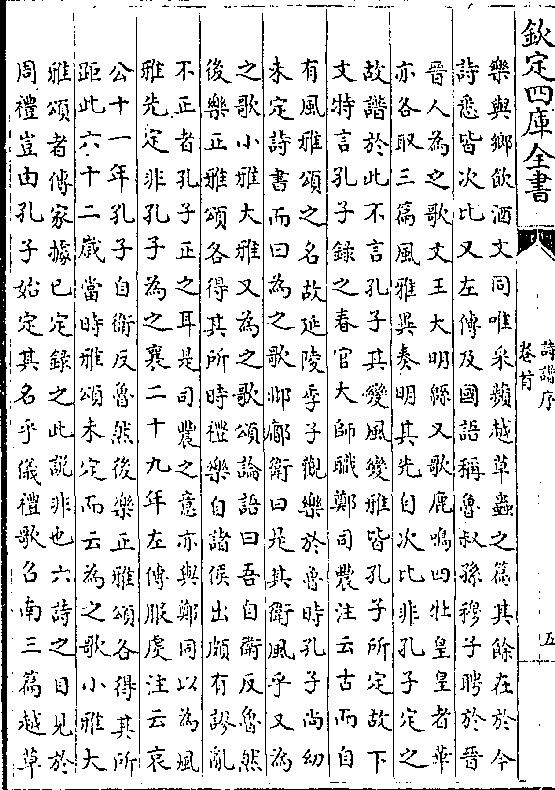 欽定四庫全書
詩譜序
卷首
五
樂與鄉飲酒文同唯采蘋越草蟲之篇其餘在於今
詩悉皆次比又左傳及國語稱魯叔孫穆子聘於晉
晉人為之歌文王大明緜又歌鹿鳴四牡皇皇者華
亦各取三篇風雅異奏明其先自次比非孔子定之
故譜於此不言孔子其變風變雅皆孔子所定故下
文特言孔子録之春官大師職鄭司農注云古而自
有風雅頌之名故延陵季子觀樂於魯時孔子尚幼
未定詩書而曰為之歌邶鄘衛曰是其衛風乎又為
之歌小雅大雅又為之歌頌論語曰吾自衛反魯然
後樂正雅頌各得其所時禮樂自諸侯出頗有謬亂
不正者孔子正之耳是司農之意亦與鄭同以為風
雅先定非孔子為之襄二十九年左傳服虔注云哀
公十一年孔子自衛反魯然後樂正雅頌各得其所
距此六十二歲當時雅頌未定而云為之歌小雅大
雅頌者傳家據已定録之此説非也六詩之目見於
周禮豈由孔子始定其名乎儀禮歌召南三篇越草